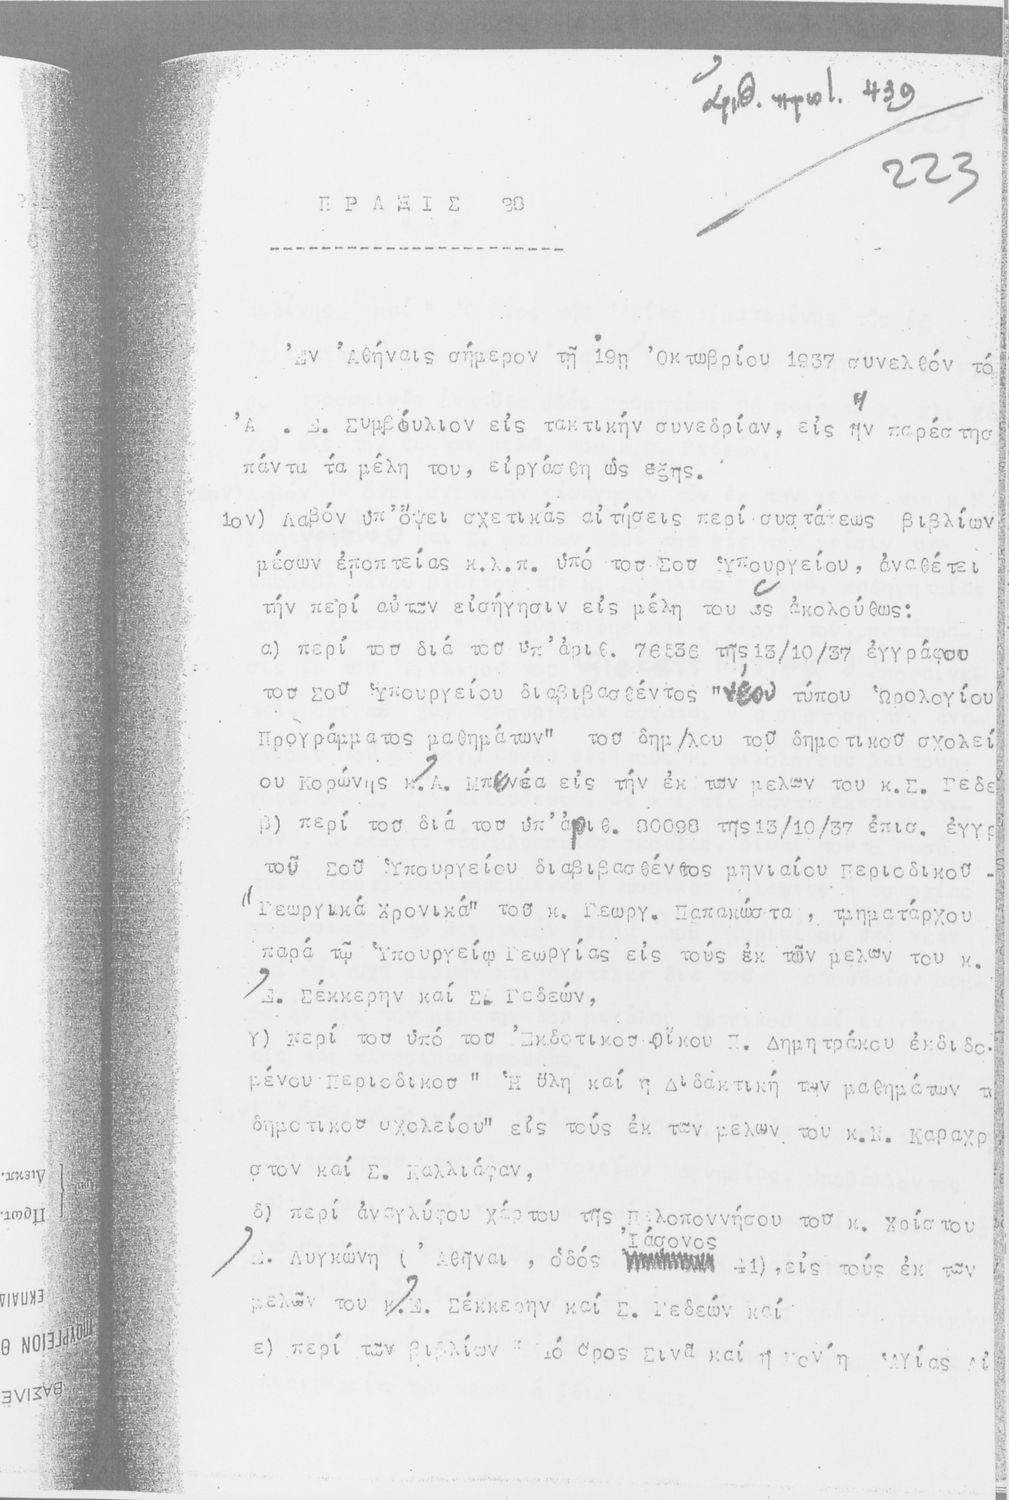 ἀριθ. πρωτ. 439
223
ΠΡΑΞΙΣ 98
Ἐν Ἀθήναις σήμερον τῇ 19ῃ Ὀκτωβρίου 1937 συνελθόν τό
Ἀ . Σ. Συμβούλιον εἰς τακτικήν συνεδρίαν, εἰς ἥν παρέστησ
πάντα τά μέλη του, εἰργάσθη ὡς εξης.
1ον) Λαβόν ὑπ'ὄψει σχετικάς αἰτήσεις περί συστάσεως βιβλίων
μέσων ἐποπτείας κ.λ.π. ὑπό τοῦ Σοῦ Ὑπουργείου, ἀναθέτει
τήν περί αὐτῶν εἰσήγησιν εἰς μέλη του ὡς ἀκολούθως:
α) περί τοῦ διά τοῦ ὑπ'ἀριθ. 76536 τῆς 13/10/37 ἐγγράφου
τοῦ Σοῦ Ὑπουργείου διαβιβασθέντος "νέου τύπου Ὡρολογίου
Προγράμματος μαθημάτων" τοῦ δημ/λου τοῦ δημοτικοῦ σχολεί
ου Κορώνης κ. Α. εἰς τήν ἐκ τῶν μελῶν του κ.Σ. Γεδε
β) περί τοῦ διά τοῦ ὑπ'ἀριθ. 80098 τῆς 13/10/37 ἐπισ. ἐγγρ
τοῦ Σοῦ Ὑπουργείου διαβιβασθέντος μηνιαίου Περιοδικοῦ -
"Γεωργικά Χρονικά" τοῦ κ. Γεωργ. Παπακώστα , τμηματάρχου
παρά τῷ Ὑπουργείῳ Γεωργίας εἰς τούς ἐκ τῶν μελῶν του κ.
Ε. Σέκκερην καί Σ. Γεδεών,
γ) περί τοῦ ὑπό τοῦ Ἐκδοτικοῦ Οἴκου Π. Δημητράκου ἐκδιδο-
μένου Περιοδικοῦ " Ἡ ὕλη καί η Διδακτική τῶν μαθημάτων τ
δημοτικοῦ σχολείου" εἰς τούς ἐκ τῶν μελῶν του κ.Ν. Καραχρ
στον καί Σ. Καλλιάφαν,
δ) περί ἀναγλύφου χάρτου τῆς Πελοποννήσου τοῦ κ. Χρίστου
Ε. Λυγκώνη ( Ἀθῆναι , ὁδός Ἰάσονος 41),εἰς τούς ἐκ τῶν
μελῶν του κ.Ε. Σέκκερην καί Σ. Γεδεών καί
ε) περί τῶν βιβλίων " Τό ὄρος Σινᾶ καί ἡ Μονή Ἁγίας Αἰ